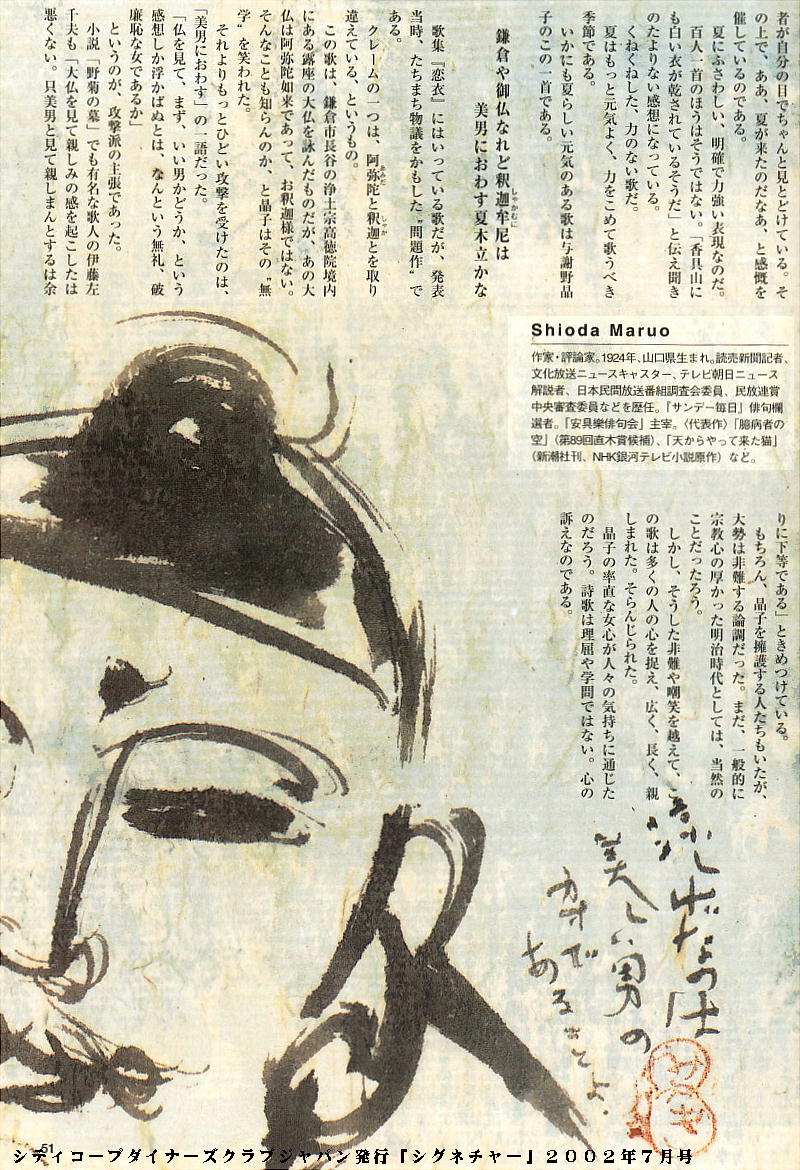 者が自分の目でちゃんと見とどけている。そ
の上で、ああ、夏が来たのだなあ、と感慨を
催しているのである。
夏にふさわしい、明確で力強い表現なのだ。
百人一首のほうはそうではない。「香具山に
も白い衣が乾されているそうだ」と伝え聞き
のたよりない感想になっている。
くねくねした、力のない歌だ。
夏はもっと元気よく、力をこめて歌うべき
季節である。
いかにも夏らしい元気のある歌は与謝野晶
子のこの一首である。
鎌倉や御仏なれど釈迦牟尼は
しゃかむに
美男におわす夏木立かな
歌集『恋衣』にはいっている歌だが、発表
当時、たちまち物議をかもした〝問題作〟で
ある。
クレームの一つは、阿弥陀と釈迦とを取り
あみだ
しゃか
違えている、というもの。
この歌は、鎌倉市長谷の浄土宗高徳院境内
にある露座の大仏を詠んだものだが、あの大
仏は阿弥陀如来であって、お釈迦様ではない。
そんなことも知らんのか、と晶子はその〝無
学〟を笑われた。
それよりもっとひどい攻撃を受けたのは、
「美男におわす」の一語だった。
「仏を見て、まず、いい男かどうか、という
感想しか浮かばぬとは、なんという無礼、破
廉恥な女であるか」
というのが、攻撃派の主張であった。
小説「野菊の墓」でも有名な歌人の伊藤左
千夫も「大仏を見て親しみの感を起こしたは
悪くない。只美男と見て親しまんとするは余
Shioda Maruo
作家・評論家。1924年、山口県生まれ。読売新聞記者、
文化放送ニュースキャスター、テレビ朝日ニュース
解説者、日本民間放送番組調査会委員、民放連賞
中央審査委員などを歴任。『サンデー毎日』俳句欄
選者。「安具楽俳句会」主宰。〈代表作〉「臆病者の
空」（第89回直木賞候補）、「天からやって来た猫」
（新潮社刊、NHK銀河テレビ小説原作）など。
りに下等である」ときめつけている。
もちろん、晶子を擁護する人たちもいたが、
大勢は非難する論調だった。まだ、一般的に
宗教心の厚かった明治時代としては、当然の
ことだったろう。
しかし、そうした非難や嘲笑を越えて、こ
の歌は多くの人の心を捉え、広く、長く、親
しまれた。そらんじられた。
晶子の率直な女心が人々の気持ちに通じた
のだろう。詩歌は理屈や学問ではない。心の
訴えなのである。
美しい男の
あることよ。
51
シティコープダイナーズクラブジャパン発行『シグネチャー』２００２年７月号